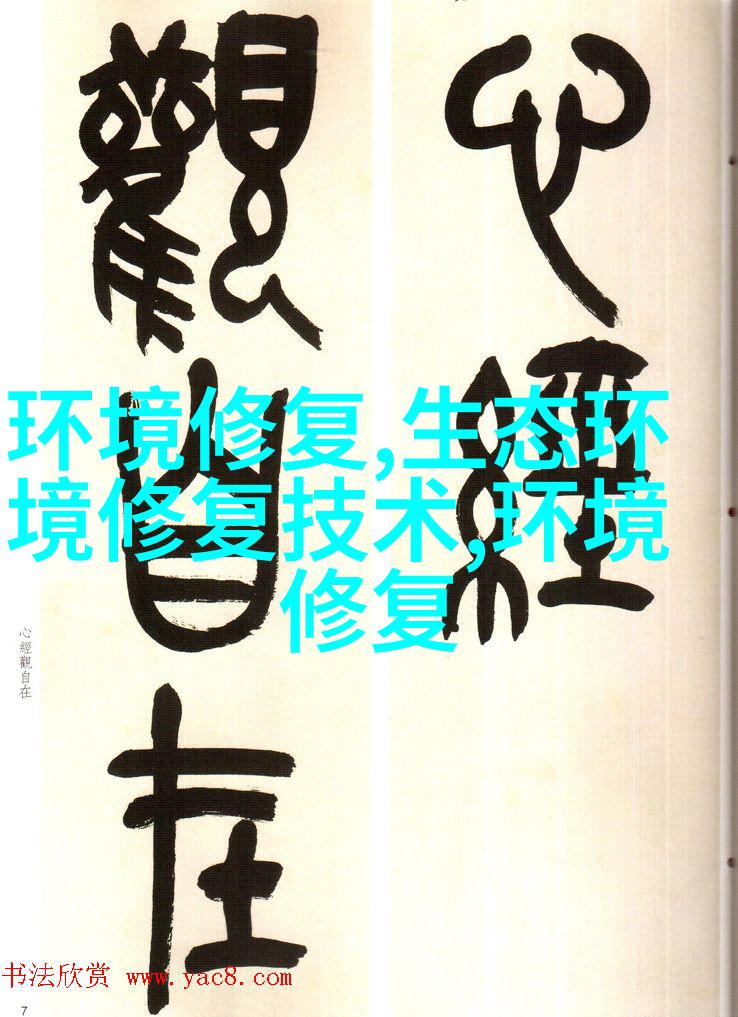 心經
觀自在
环境修复,生态环
境修复技术,环境
修复
心經觀自在
书法欣赏 www.yac8.com
7